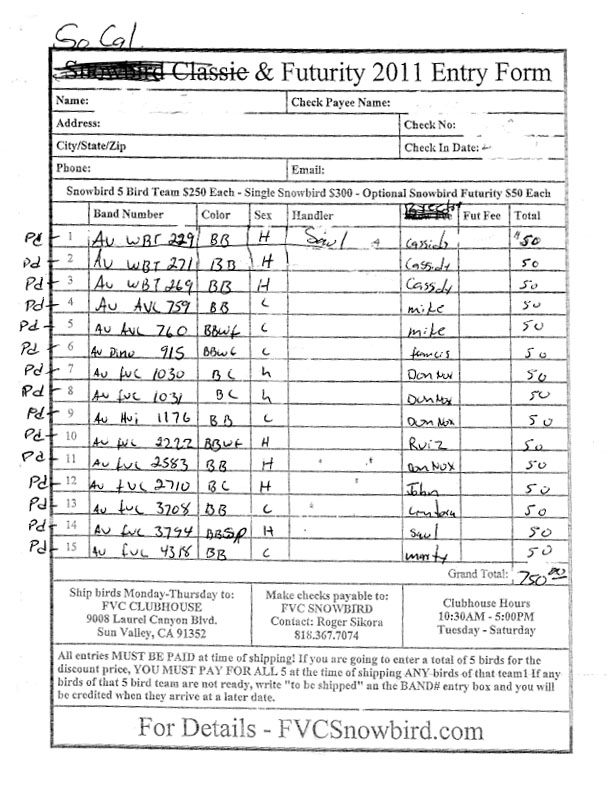 So Cal
Snowbird Classic & Futurity 2011 Entry Form
Name: Check Payee Name:
Address: Check No:
City/State/Zip Check In Date:
Phone: Email:
Snowbird 5 Bird Team $250 Each - Single Snowbird $300 - Optional Snowbird Futurity $50 Each
Band Number Color Sex Handler Breeder Fut Fee Total
Pd 1 AU WBT 229 BB H Saul Cassidy $50
Pd 2 AU WBT 271 BB H Cassidy 50
Pd 3 AU WBT 269 BB H Cassidy 50
Pd 4 AU AVC 759 BB C mike 50
Pd 5 AU AVC 760 BBWF C mike 50
Pd 6 AU Dino 915 BBWF C francis 50
Pd 7 AU FVC 1030 BC h Don Nux 50
Pd 8 AU FVC 1031 BC h Don Nux 50
Pd 9 AU Hui 1176 BB C Don Nux 50
Pd 10 AU FVC 2222 BBWF H Ruiz 50
Pd 11 AU FVC 2583 BB H Don Nux 50
Pd 12 AU FVC 2710 BC H John 50
Pd 13 AU FVC 3708 BB C 50
Pd 14 AU FVC 3794 BBSP H Saul 50
Pd 15 AU FVC 4318 BB C marty 50
Grand Total: 750.00
Ship birds Monday-Thursday to:
FVC CLUBHOUSE
9008 Laurel Canyon Blvd.
Sun Valley, CA 91352
Make checks payable to:
FVC SNOWBIRD
Contact: Roger Sikora
818.367.7074
Clubhouse Hours
10:30AM - 5:00PM
Tuesday - Saturday
All entries MUST BE PAID at time of shipping! If you are going to enter a total of 5 birds for the
discount price, YOU MUST PAY FOR ALL 5 at the time of shipping ANY birds of that team! If any
birds of that 5 bird team are not ready, write "to be shipped" an the BAND# entry box and you will
be credited when they arrive at a later date.
For Details - FVCSnowbird.com